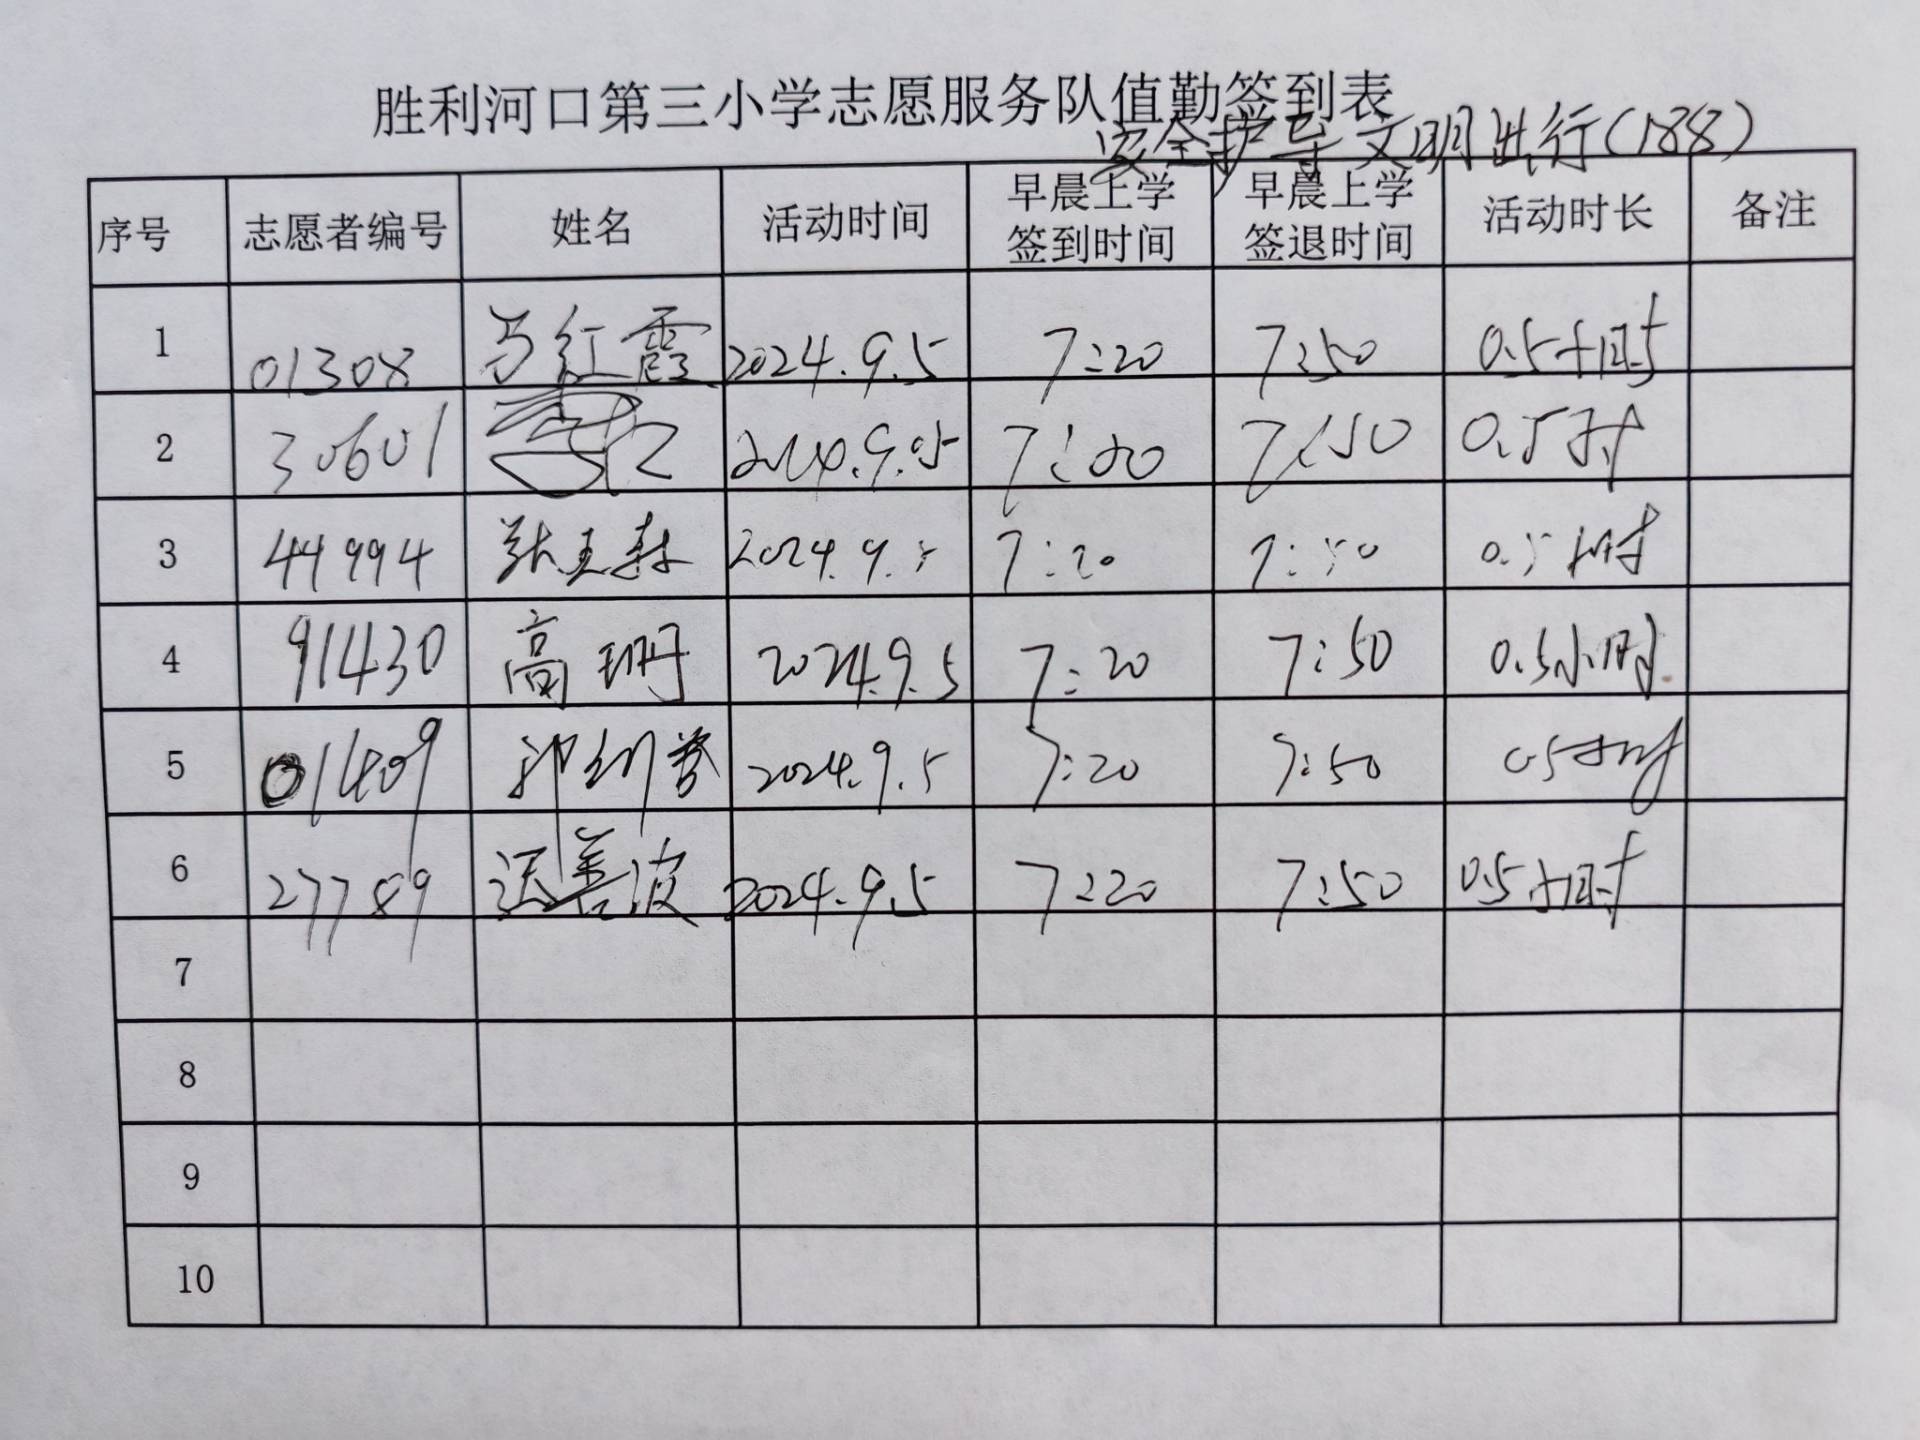 胜利河口第三小学志愿服务队值勤签到表
安全护导 文明出行(188)
序号 志愿者编号 姓名 活动时间 早晨上学签到时间 早晨上学签退时间 活动时长 备注
1 01308 马红霞 2024.9.5 7:20 7:50 0.5小时
2 30601 2024.9.5 7:20 7:50 0.5小时
3 44994 张玉森 2024.9.5 7:20 7:50 0.5小时
4 91430 高珊 2024.9.5 7:20 7:50 0.5小时
5 01409 2024.9.5 7:20 7:50 0.5小时
6 27789 善波 2024.9.5 7:20 7:50 0.5小时
7
8
9
10